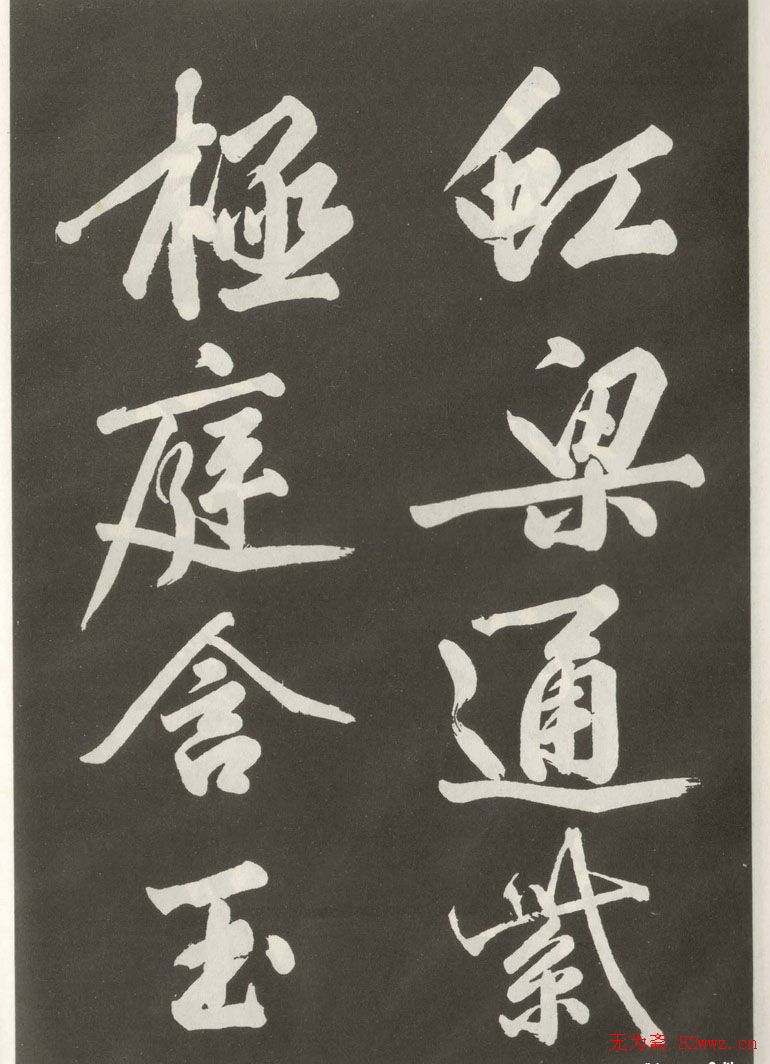 虹梁通紫
極庭含玉
无为斋 52wwz.cn